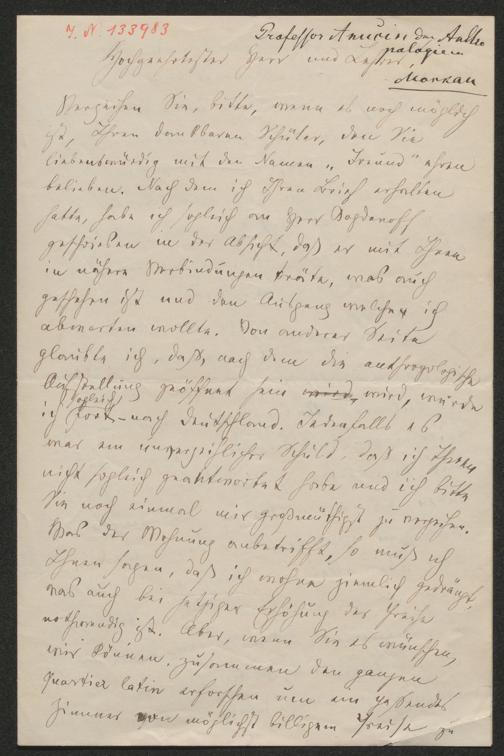 J. N. 133983
Professor Anucin der Anthro
pologie in
Moskau
Hochgeehrtester Herr und Lehrer,
Verzeihen Sie, bitte, wenn es noch möglich
ist, Ihren dankbaren Schüler, den Sie
liebenswürdig mit den Namen „Freund" ehren
belieben. Nach dem ich Ihren Brief erhalten
hatte, habe ich sogleich an Herr Bogdanoff
geschrieben in der Absicht, daß er mit Ihnen
in nähere Verbindungen träte, was auch
geschehen ist und den Ausgang welchen ich
abwarten wollte. Von anderer Seite
glaubte ich, daß, nach dem die anthropologische
Ausstellung geöffnet sein wird, wird, würde
ich sogleich nach Deutschland. Jedenfalls es
war ein unverzeihlicher Schuld, daß ich Ihnen
nicht sogleich geantwortet habe und ich bitte
Sie noch einmal mir großmüthigst zu verzeihen.
Was der Wohnung anbetrifft, so muß ich
Ihnen sagen, daß ich wohne ziemlich gedrängt,
was auch bei jetziger Erhöhung der Preise
nothwendig ist. Aber, wenn Sie es wünschen,
wir können zusammen den ganzen
Quartier latin erforschen um ein passendes
Zimmer von möglichst billigem Preise zu